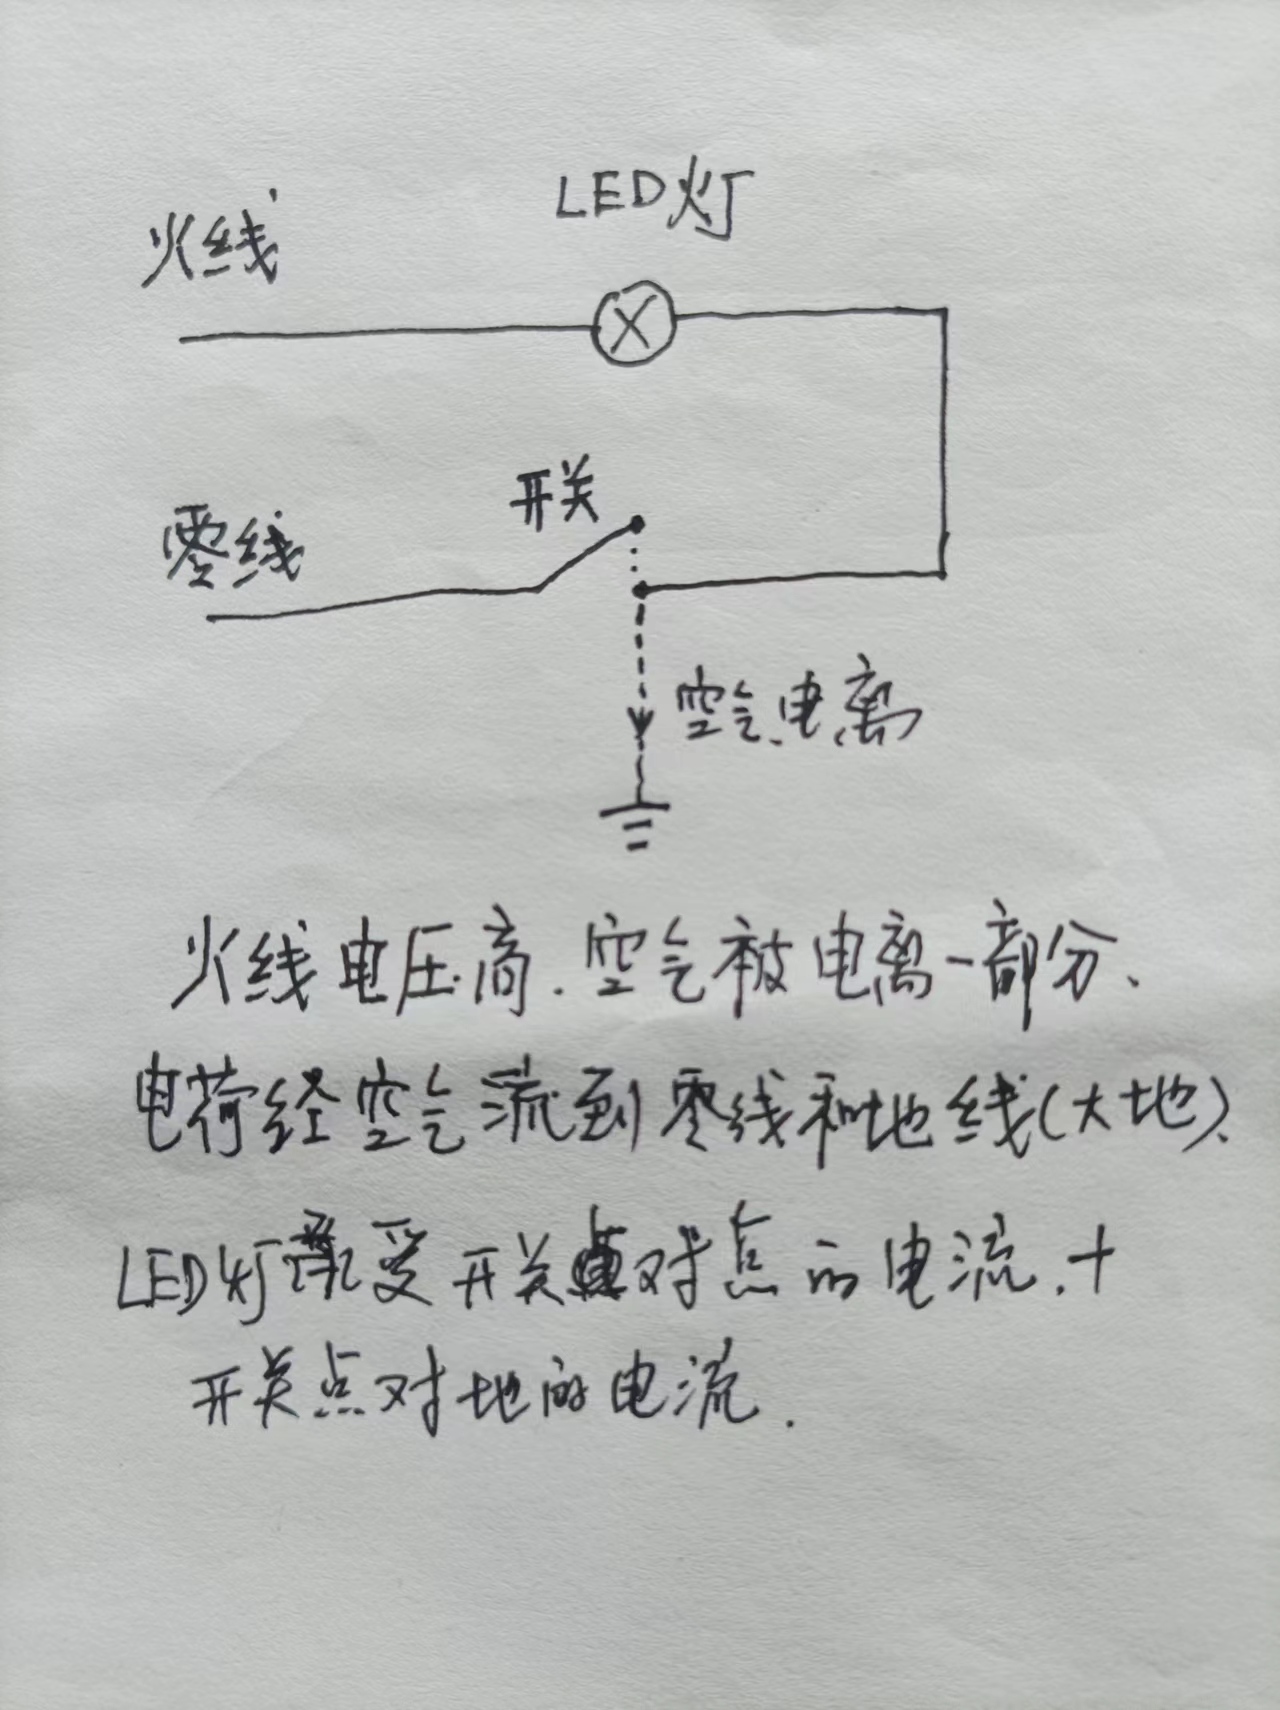 LED灯
火线
开关
零线
空气电离
火线电压高.空气被电离一部分、
电荷经空气流到零线和地线(大地)、
LED灯承受开关对点的电流.+
开关点对地的电流.